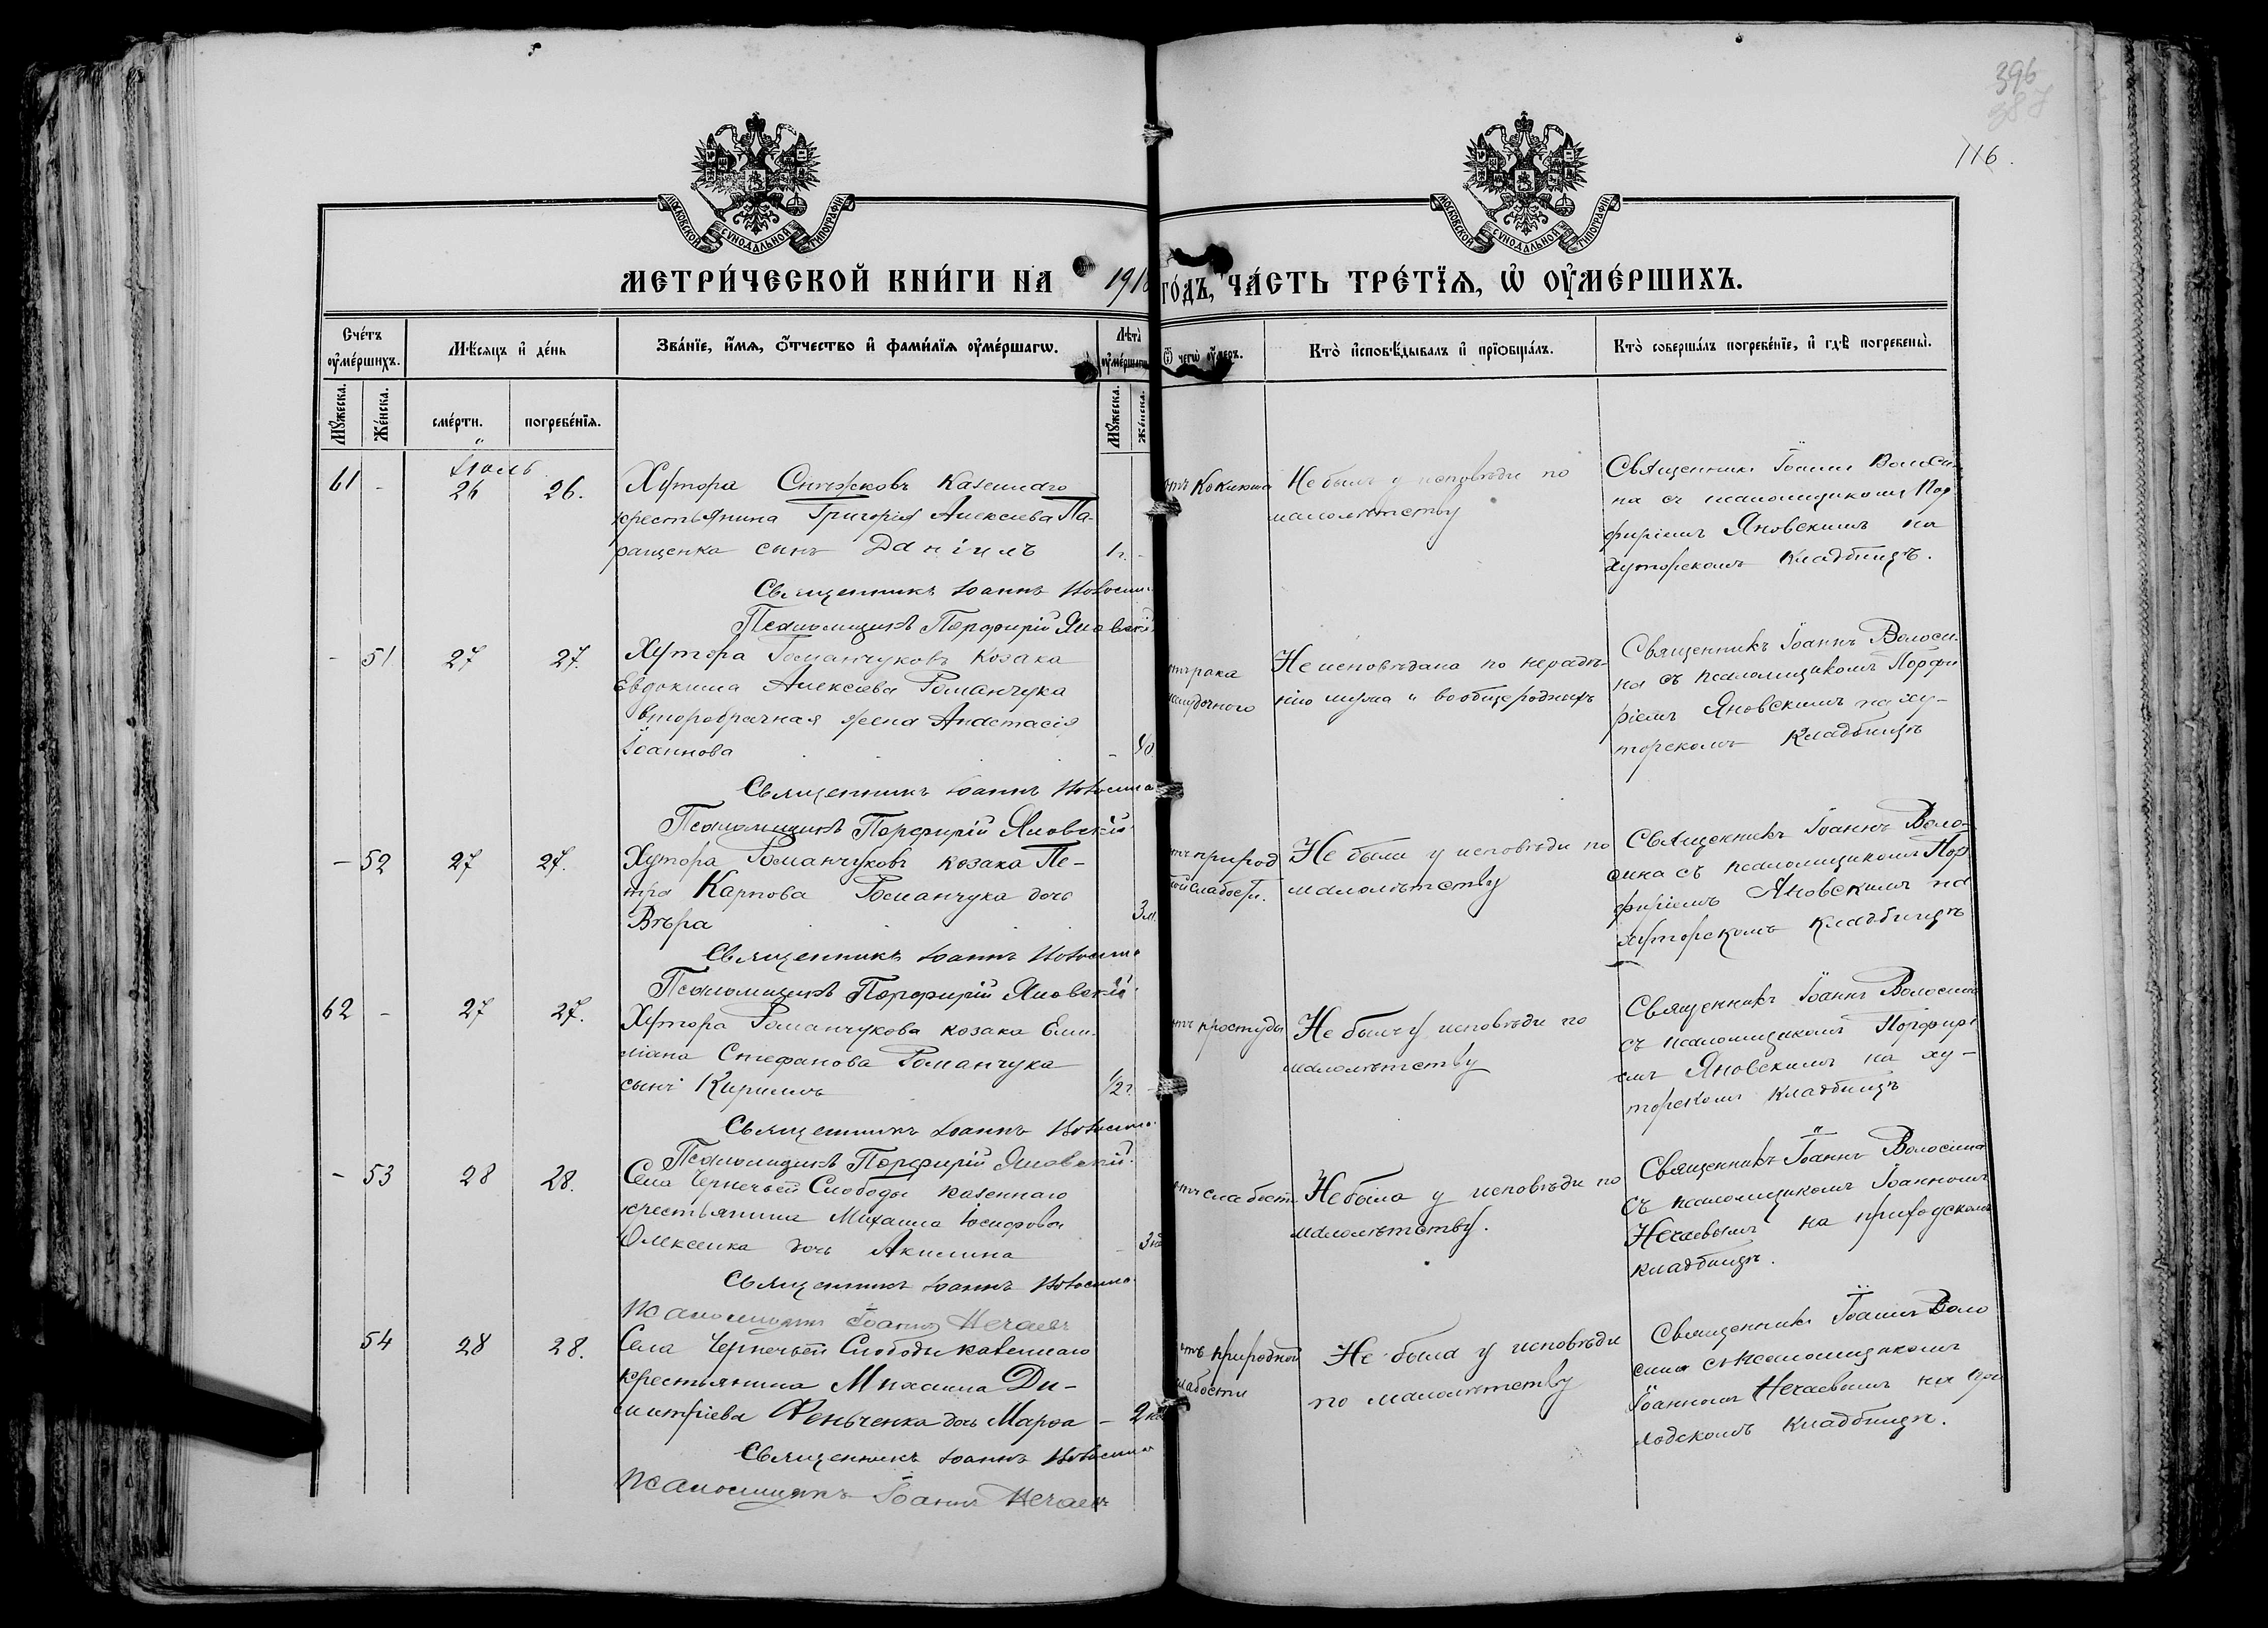 396
387
116.
МОСКОВСКОЙ СѴНОДАЛЬНОЙ ТИПОГРАФІИ
МОСКОВСКОЙ СѴНОДАЛЬНОЙ ТИПОГРАФІИ
МЕТРИ́ЧЕСКОЙ КНИ́ГИ НА 191 ГО́ДЪ, ЧА́СТЬ ТРЕ́ТЇѦ, Ѡ҆ ОУ҆МЕ́РШИХЪ.
Сче́тъ оу҆ме́ршихъ.
Мѣ́сяцъ и҆ де́нь
Зва́нїе, и҆́мѧ, ѻ҆́тчество и҆ фами́лїѧ оу҆ме́ршагѡ.
Лѣ̀та оу҆ме́ршагѡ
Ѿ чегѡ̀ оу҆́меръ.
Кто̀ и҆сповѣ́дывалъ и҆ прїѡбща́лъ.
Кто̀ соверша́лъ погребе́нїе, и҆ гдѣ̀ погребены̀.
Мꙋ́жеска.
Же́нска.
сме́рти.
погребе́нїѧ.
Мꙋ́жеска.
Же́нска.
Іюль
61 - 26 26.
Хутора Снѣжковъ казеннаго
крестьянина Григорія Алексѣева Па-
ращенка сынъ Даніилъ 1г. -
Священникъ Іоаннъ Волосина
Псаломщикъ Порфирій Яновскій
отъ Коклюша
Не былъ у исповѣди по
малолѣтству
Священникъ Іоаннъ Волоси-
на съ псаломщикомъ Пор
фиріемъ Яновскимъ на
хуторскомъ кладбищѣ.
- 51 27 27.
Хутора Романчуковъ козака
Евдокима Алексѣева Романчука
второбрачная жена Анастасія
Іоаннова - 40.
Священникъ Іоаннъ Волосина
Псаломщикъ Порфирій Яновскій
отъ рака
желудочного
Не исповѣдана по нерадѣ-
нію мужа и вообще родныхъ
Священникъ Іоаннъ Волоси-
на съ псаломщикомъ Порфи
ріемъ Яновскимъ на ху-
торскомъ кладбищѣ
- 52 27 27.
Хутора Романчуковъ козака Пе-
тра Карпова Романчука дочь
Вѣра 3 м.
Священникъ Іоаннъ Волосина
Псаломщикъ Порфирій Яновскій
отъ природ
ной слабости.
Не была у исповѣди по
малолѣтству
Священникъ Іоаннъ Воло-
сина съ псаломщикомъ Пор
фиріемъ Яновскимъ на
хуторскомъ кладбищѣ
62 - 27 27.
Хутора Романчукова козака Еми-
ліана Стефанова Романчука
сынъ Кириллъ 1/2 г. -
Священникъ Іоаннъ Волосина
Псаломщикъ Порфирій Яновскій
отъ простуды
Не былъ у исповѣди по
малолѣтству
Священникъ Іоаннъ Волосина
съ псаломщикомъ Порфирі
емъ Яновскимъ на ху-
торскомъ кладбищѣ
- 53 28 28.
Села Чернечьей Слободы казеннаго
крестьянина Михаила Іосифова
Олексенка дочь Акилина - 3 нд
Священникъ Іоаннъ Волосина
Псаломщикъ Іоаннъ Нечаевъ
отъ слабости
Не была у исповѣди по
малолѣтству.
Священникъ Іоаннъ Волосина
съ псаломщикомъ Іоанномъ
Нечаевымъ на приходскомъ
кладбищѣ.
54 28 28.
Села Чернечьей Слободы казеннаго
крестьянина Михаила Ди-
митріева Феньченка дочь Марѳа - 2 нд
Священникъ Іоаннъ Волосина
Псаломщикъ Іоаннъ Нечаевъ
отъ природной
слабости
Не была у исповѣди
по малолѣтству
Священникъ Іоаннъ Воло
сина съ псаломщикомъ
Іоанномъ Нечаевымъ на при
ходскомъ кладбищѣ.